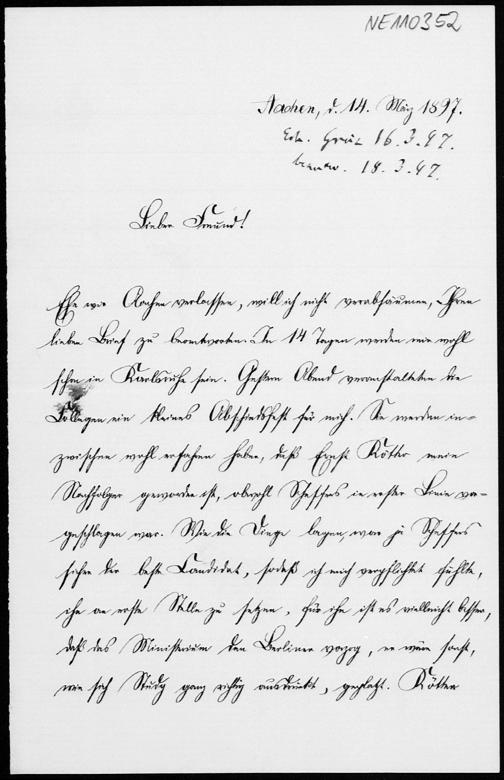 NE110352
Aachen, d. 14. März 1897.
Erh. Graz 16.3.97.
beantw. 18.3.97.
Lieber Freund!
Ehe wir Aachen verlassen, will ich nicht verabsäumen, Ihren
lieben Brief zu beantworten. In 14 Tagen werden wir wohl
schon in Karlsruhe sein. Gestern Abend veranstalteten die
Collegen ein kleines Abschiedsfest für mich. Sie werden in-
zwischen wohl erfahren haben, daß Ernst Kötter mein
Nachfolger geworden ist, obwohl Scheffers in erster Linie vor-
geschlagen war. Wie die Dinge lagen, war ja Scheffers
sicher der beste Candidat, sodaß ich mich verpflichtet fühlte,
ihn an erste Stelle zu setzen. Für ihn ist es vielleicht besser,
daß das Ministerium den Berliner vorzog, er wäre sonst,
wie sich Study ganz richtig ausdrückt, geplatzt. Kötter